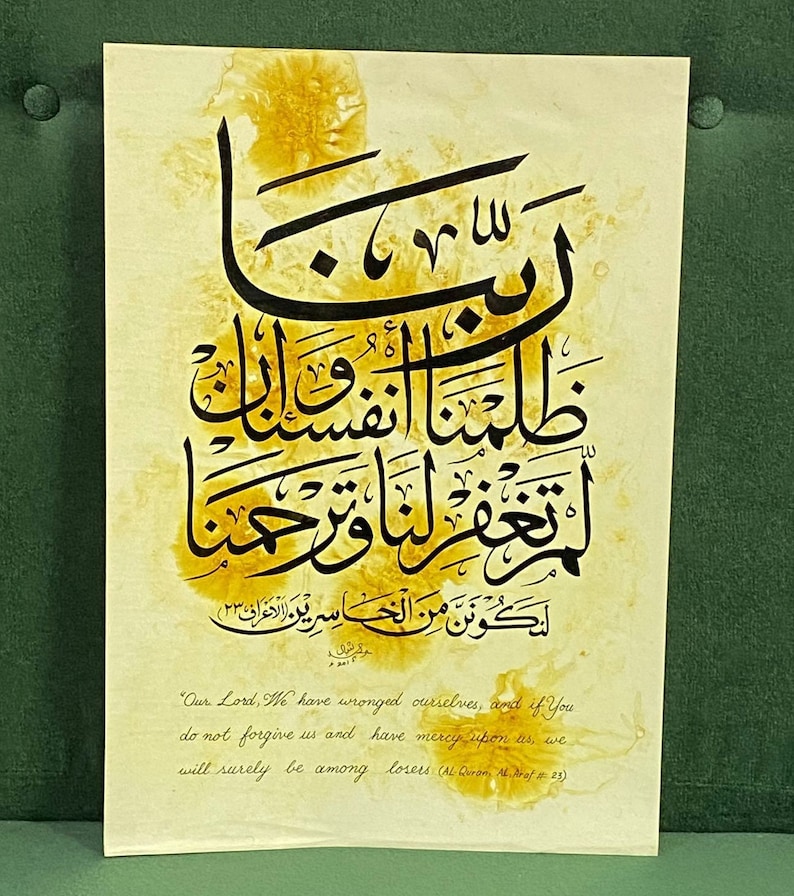 رَبَّنَا
ظَلَمْنَا أَنْفُسَنَا وَإِنْ
لَّمْ تَغْفِرْ لَنَا وَتَرْحَمْنَا
لَنَكُونَنَّ مِنَ الْخَاسِرِينَ (الْأَعْرَاف ٢٣)
"Our Lord, We have wronged ourselves, and if You
do not forgive us and have mercy upon us, we
will surely be among losers (AL-Quran, AL, Araf # 23)